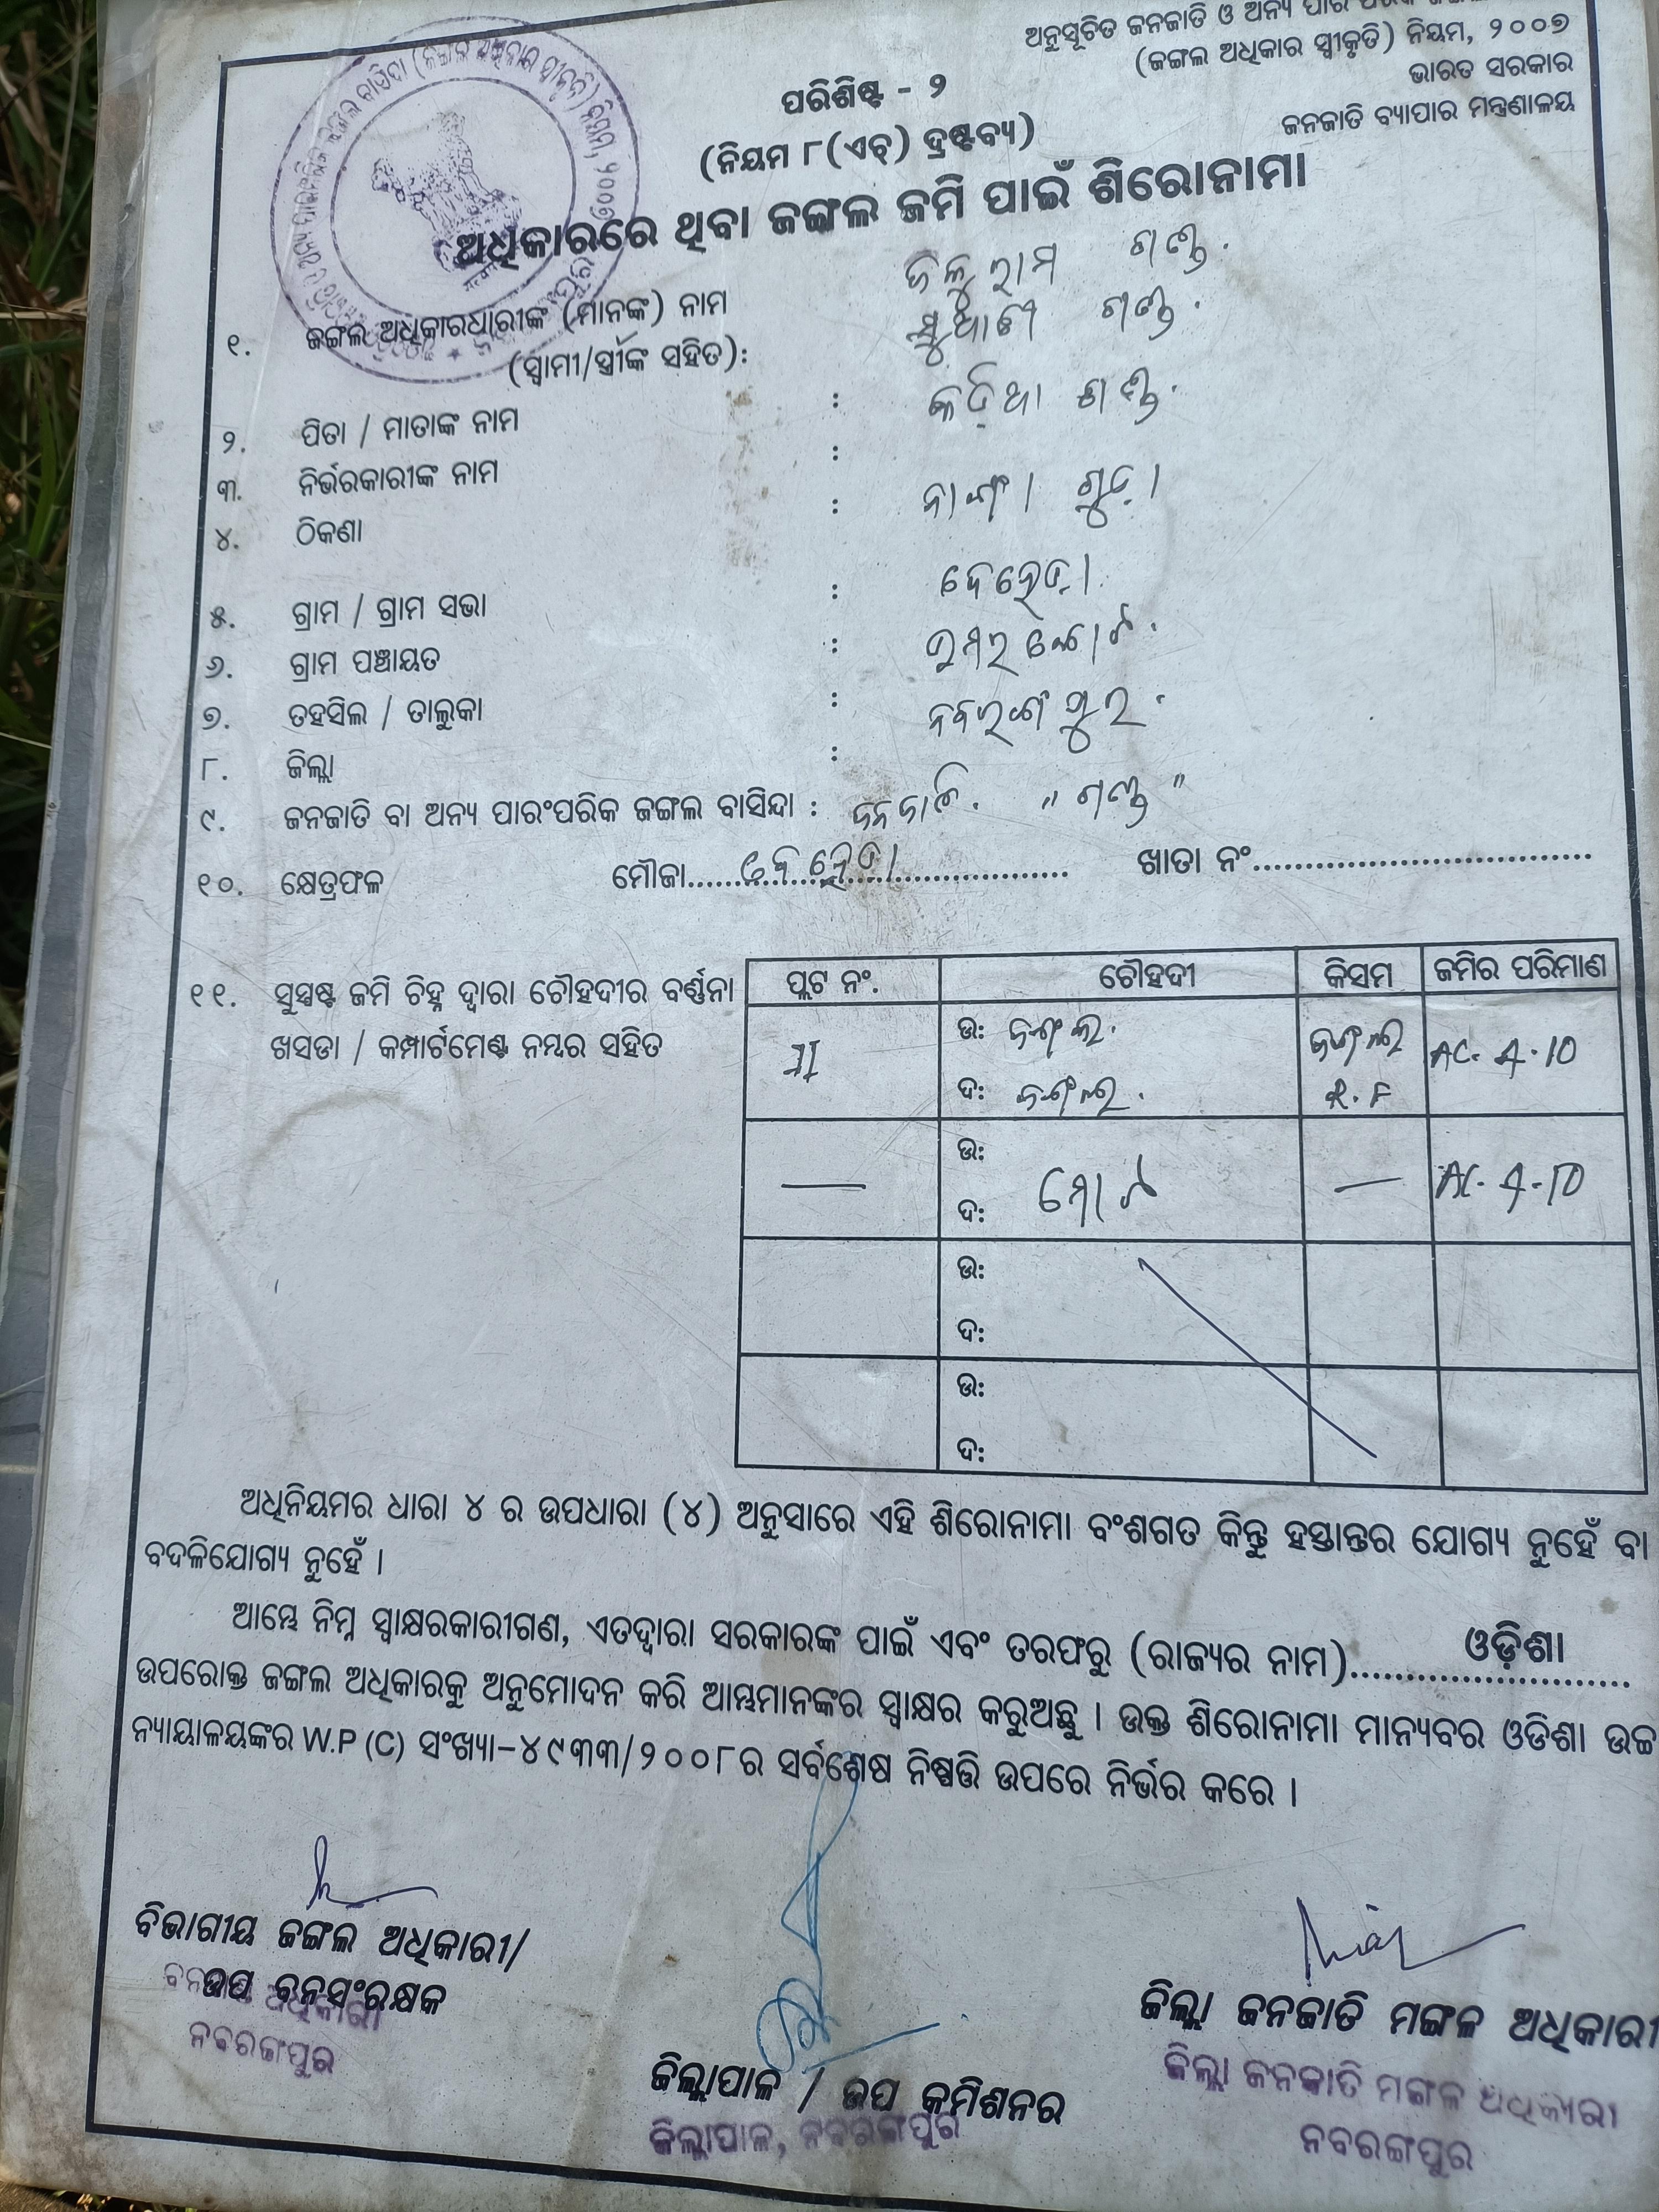 ଅନୁସୂଚିତ ଜନଜାତି ଓ ଅନ୍ୟ
(ଜଙ୍ଗଲ ଅଧିକାର ସ୍ୱୀକୃତି) ନିୟମ, ୨୦୦୭
ଭାରତ ସରକାର
ଜନଜାତି ବ୍ୟାପାର ମନ୍ତ୍ରଣାଳୟ
ପରିଶିଷ୍ଟ - ୨
(ନିୟମ ୮(ଏଚ୍) ଦ୍ରଷ୍ଟବ୍ୟ)
ଅଧିକାରରେ ଥିବା ଜଙ୍ଗଲ ଜମି ପାଇଁ ଶିରୋନାମା
୧. ଜଙ୍ଗଲ ଅଧିକାରଧାରୀଙ୍କ (ମାନଙ୍କ) ନାମ ରାମ ଗଣ୍ଡ.
(ସ୍ୱାମୀ/ସ୍ତ୍ରୀଙ୍କ ସହିତ): ଗଣ୍ଡ.
୨. ପିତା / ମାତାଙ୍କ ନାମ : ଗଣ୍ଡ.
୩. ନିର୍ଭରକାରୀଙ୍କ ନାମ :
୪. ଠିକଣା : ଗୁଡ଼ା
୫. ଗ୍ରାମ / ଗ୍ରାମ ସଭା :
୬. ଗ୍ରାମ ପଞ୍ଚାୟତ :
୭. ତହସିଲ / ତାଲୁକା :
୮. ଜିଲ୍ଲା : ନବରଙ୍ଗପୁର.
୯. ଜନଜାତି ବା ଅନ୍ୟ ପାରଂପରିକ ଜଙ୍ଗଲ ବାସିନ୍ଦା : ଜନଜାତି. " ଗଣ୍ଡ "
୧୦. କ୍ଷେତ୍ରଫଳ ମୌଜା............ ଖାତା ନଂ............
୧୧. ସୁସ୍ପଷ୍ଟ ଜମି ଚିହ୍ନ ଦ୍ୱାରା ଚୌହଦୀର ବର୍ଣ୍ଣନା
ଖସଡା / କମ୍ପାର୍ଟମେଣ୍ଟ ନମ୍ବର ସହିତ
ପ୍ଲଟ ନଂ. ଚୌହଦୀ କିସମ ଜମିର ପରିମାଣ
ଉ: ଜଙ୍ଗଲ. ଜଙ୍ଗଲ AC. 4.10
ଦ: ଜଙ୍ଗଲ. R.F
ଉ:
— ମୋଟ — AC. 4.10
ଦ:
ଉ:
ଦ:
ଉ:
ଦ:
ଅଧିନିୟମର ଧାରା ୪ ର ଉପଧାରା (୪) ଅନୁସାରେ ଏହି ଶିରୋନାମା ବଂଶଗତ କିନ୍ତୁ ହସ୍ତାନ୍ତର ଯୋଗ୍ୟ ନୁହେଁ ବା
ବଦଳିଯୋଗ୍ୟ ନୁହେଁ ।
ଆମ୍ଭେ ନିମ୍ନ ସ୍ୱାକ୍ଷରକାରୀଗଣ, ଏତଦ୍ୱାରା ସରକାରଙ୍କ ପାଇଁ ଏବଂ ତରଫରୁ (ରାଜ୍ୟର ନାମ)......ଓଡ଼ିଶା......
ଉପରୋକ୍ତ ଜଙ୍ଗଲ ଅଧିକାରକୁ ଅନୁମୋଦନ କରି ଆମ୍ଭମାନଙ୍କର ସ୍ୱାକ୍ଷର କରୁଅଛୁ । ଉକ୍ତ ଶିରୋନାମା ମାନ୍ୟବର ଓଡିଶା ଉଚ୍ଚ
ନ୍ୟାୟାଳୟଙ୍କର W.P (C) ସଂଖ୍ୟା-୪୯୩୩/୨୦୦୮ର ସର୍ବଶେଷ ନିଷ୍ପତ୍ତି ଉପରେ ନିର୍ଭର କରେ ।
ବିଭାଗୀୟ ଜଙ୍ଗଲ ଅଧିକାରୀ/
ଉପ ବନସଂରକ୍ଷକ
ନବରଙ୍ଗପୁର
ଜିଲ୍ଲାପାଳ / ଉପ କମିଶନର
ଜିଲ୍ଲାପାଳ, ନବରଙ୍ଗପୁର
ଜିଲ୍ଲା ଜନଜାତି ମଙ୍ଗଳ ଅଧିକାରୀ
ଜିଲ୍ଲା ଜନଜାତି ମଙ୍ଗଳ ଅଧିକାରୀ
ନବରଙ୍ଗପୁର